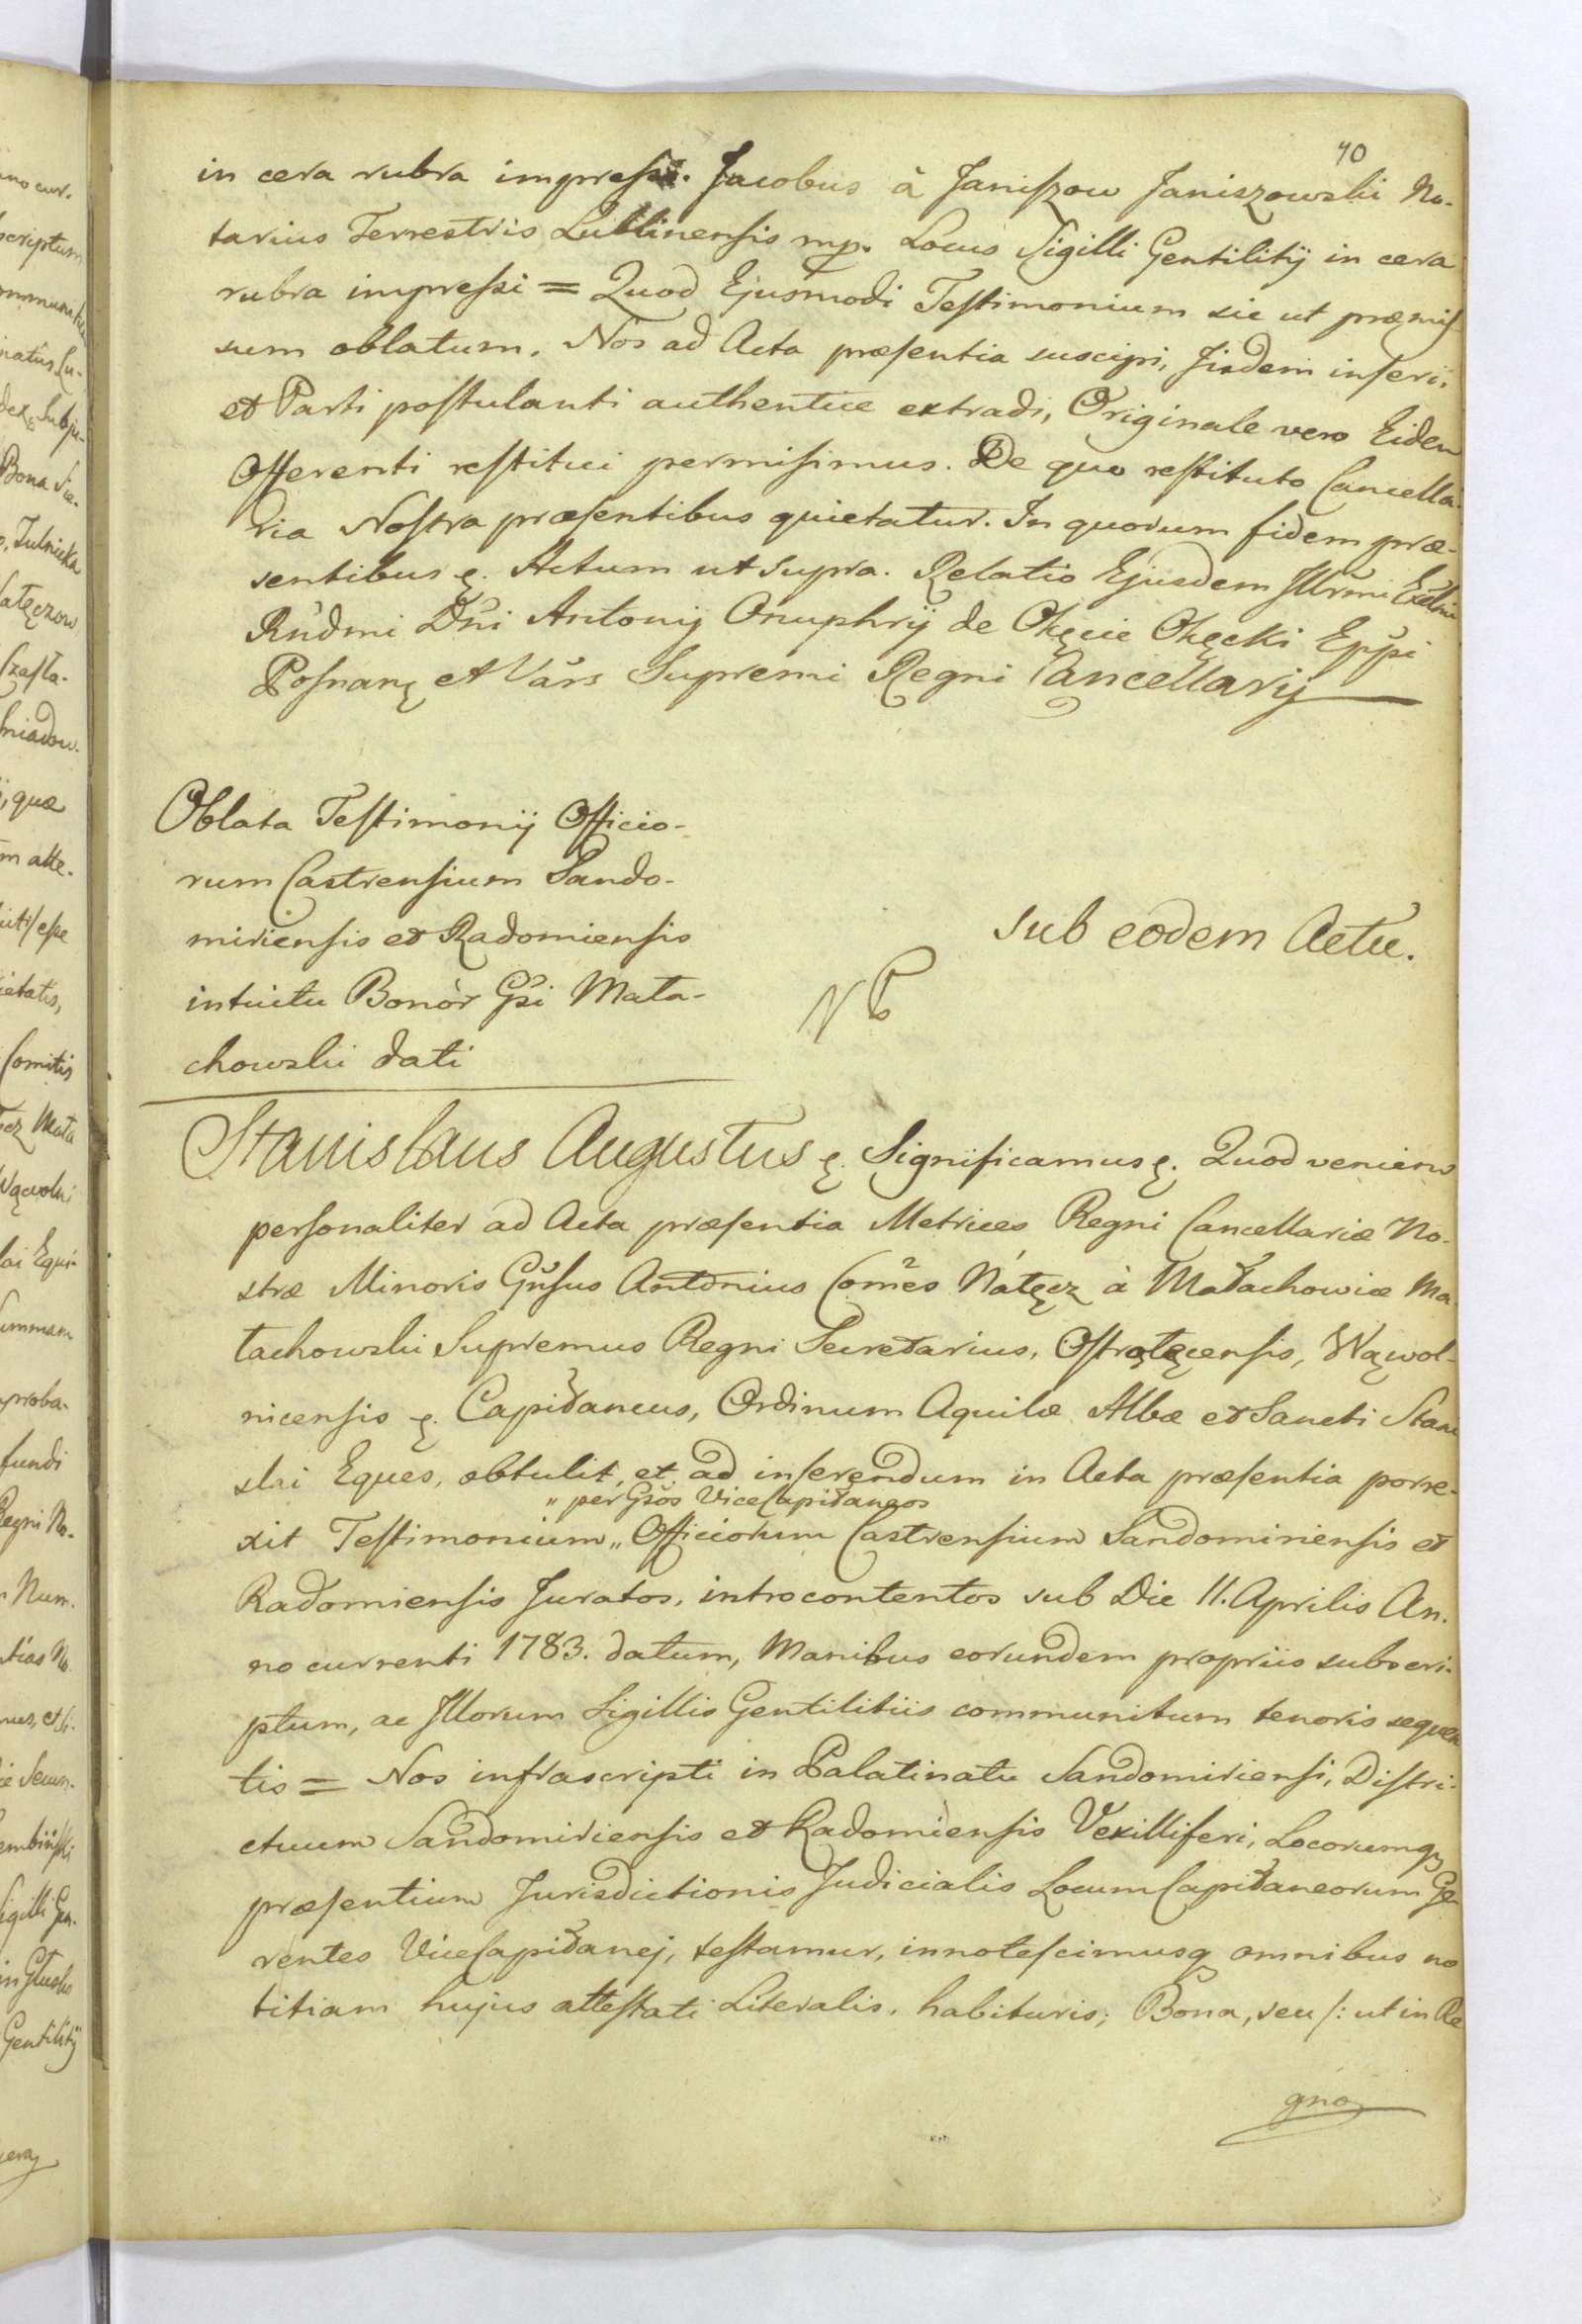 40
in cera rubra impressi. Jacobus à Janiszow Janiszowski No-
tarius Terrestris Lublinensis mp. Locus Sigilli Gentilitij in cera
rubra impressi = Quod Ejusmodi Testimonium sic ut præmis-
sum oblatum, Nos ad Acta præsentia suscipi, Iisdem inseri,
et Parti postulanti authentice extradi, Originale vero Eidem
Offerenti restitui permisimus. De quo restituto Cancella-
ria Nostra præsentibus quietatur. In quorum fidem præ-
sentibus ę. Actum ut supra. Relatio Ejusdem Illrmi Exclmi
Rndmi Dñi Antonij Onuphrij de Okęcie Okęcki Eppi
Posnanę et Vars Supremi Regni Cancellarij
Oblata Testimonij Officio-
rum Castrensium Sando-
miriensis et Radomiensis
intuitu Bonor Gsi Mała-
chowski dati
Sub eodem Actu.
NB
Stanislaus Augustus ę. Significamus ę. Quod veniens
personaliter ad Acta præsentia Metrices Regni Cancellariæ No-
stræ Minoris Gñsus Antonius Comes Nałęcz à Małachowice Ma-
łachowski Supremus Regni Secretarius, Ostrołęcensis, Wąwol-
nicensis ę. Capitaneus, Ordinum Aquilæ Albæ et Sancti Stani
slai Eques, obtulit, et ad inserendum in Acta præsentia porre-
" per Gsos ViceCapitaneos
xit Testimonium „ Officiorum Castrensium Sandomiriensis et
Radomiensis Juratos, introcontentos sub Die 11. Aprilis An-
no currenti 1783. datum, Manibus eorundem propriis subscri-
ptum, ac Illorum Sigillis Gentilitiis communitum tenoris sequen
tis = Nos infrascripti in Palatinatu Sandomiriensi, Distri-
ctuum Sandomiriensis et Radomiensis Vexilliferi, Locorumq
præsentium Jurisdictionis Judicialis Locum Capitaneorum Ge
rentes ViceCapitanej, testamur, innotescimusq omnibus no
titiam hujus attestati Literalis, habituris; Bona, seu /: ut in Re
gno